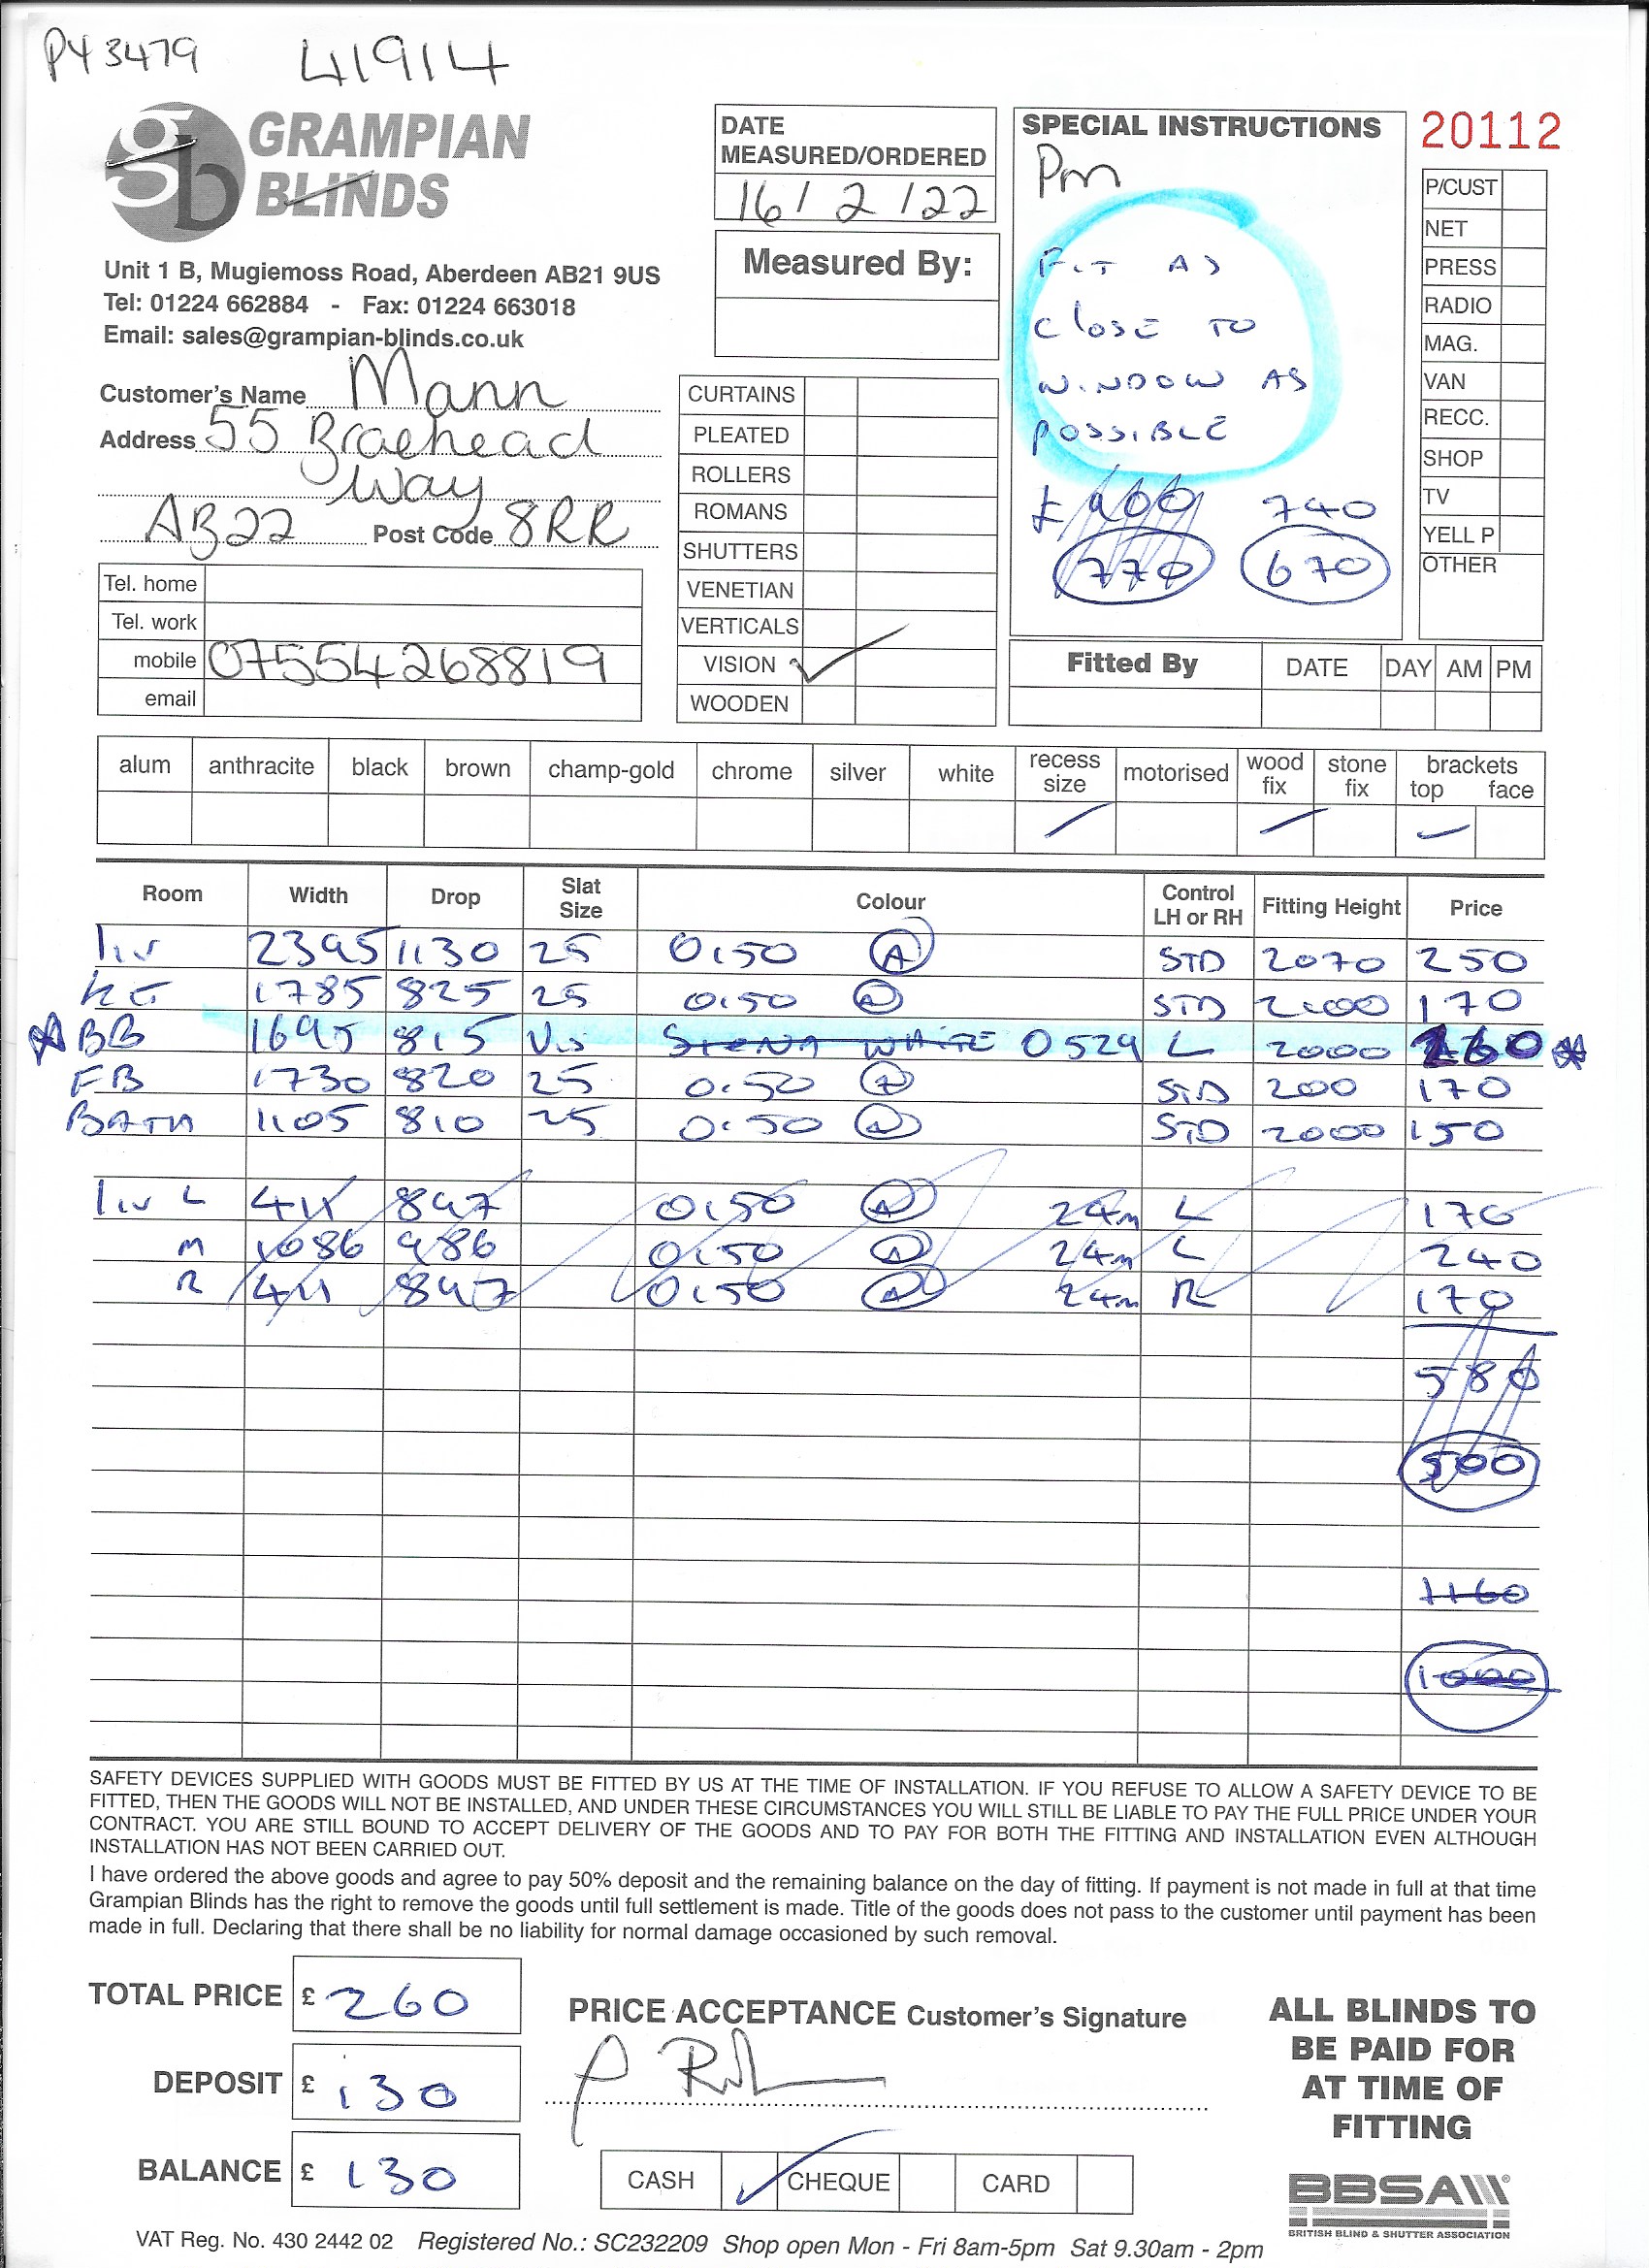 PY3479 41914
gb GRAMPIAN
BLINDS
Unit 1 B, Mugiemoss Road, Aberdeen AB21 9US
Tel: 01224 662884 - Fax: 01224 663018
Email: sales@grampian-blinds.co.uk
Customer's Name Mann
Address 55 Braehead
Way
AB22 Post Code 8RR
Tel. home
Tel. work
mobile 07554268819
email
DATE
MEASURED/ORDERED
16/2/22
Measured By:
CURTAINS
PLEATED
ROLLERS
ROMANS
SHUTTERS
VENETIAN
VERTICALS
VISION ✓
WOODEN
SPECIAL INSTRUCTIONS
Pm
FIT AS
CLOSE TO
WINDOW AS
POSSIBLE
£900 740
770 670
20112
P/CUST
NET
PRESS
RADIO
MAG.
VAN
RECC.
SHOP
TV
YELL P
OTHER
Fitted By DATE DAY AM PM
alum anthracite black brown champ-gold chrome silver white recess size motorised wood fix stone fix brackets top face
Room Width Drop Slat Size Colour Control LH or RH Fitting Height Price
liv 2395 1130 25 0150 A STD 2070 250
KT 1785 825 25 0150 A STD 2000 170
BB 1695 815 Vis SIENA WHITE 0529 L 2000 260
FB 1730 820 25 0150 A STD 200 170
BATH 1105 810 25 0150 A STD 2000 150
liv L 411 897 0150 A 24m L 170
M 1086 986 0150 A 24m L 240
R 411 897 0150 A 24m R 170
580
500
1160
1000
SAFETY DEVICES SUPPLIED WITH GOODS MUST BE FITTED BY US AT THE TIME OF INSTALLATION. IF YOU REFUSE TO ALLOW A SAFETY DEVICE TO BE
FITTED, THEN THE GOODS WILL NOT BE INSTALLED, AND UNDER THESE CIRCUMSTANCES YOU WILL STILL BE LIABLE TO PAY THE FULL PRICE UNDER YOUR
CONTRACT. YOU ARE STILL BOUND TO ACCEPT DELIVERY OF THE GOODS AND TO PAY FOR BOTH THE FITTING AND INSTALLATION EVEN ALTHOUGH
INSTALLATION HAS NOT BEEN CARRIED OUT.
I have ordered the above goods and agree to pay 50% deposit and the remaining balance on the day of fitting. If payment is not made in full at that time
Grampian Blinds has the right to remove the goods until full settlement is made. Title of the goods does not pass to the customer until payment has been
made in full. Declaring that there shall be no liability for normal damage occasioned by such removal.
TOTAL PRICE £ 260
DEPOSIT £ 130
BALANCE £ 130
PRICE ACCEPTANCE Customer's Signature
CASH ✓ CHEQUE CARD
ALL BLINDS TO
BE PAID FOR
AT TIME OF
FITTING
BBSA
BRITISH BLIND & SHUTTER ASSOCIATION
VAT Reg. No. 430 2442 02 Registered No.: SC232209 Shop open Mon - Fri 8am-5pm Sat 9.30am - 2pm